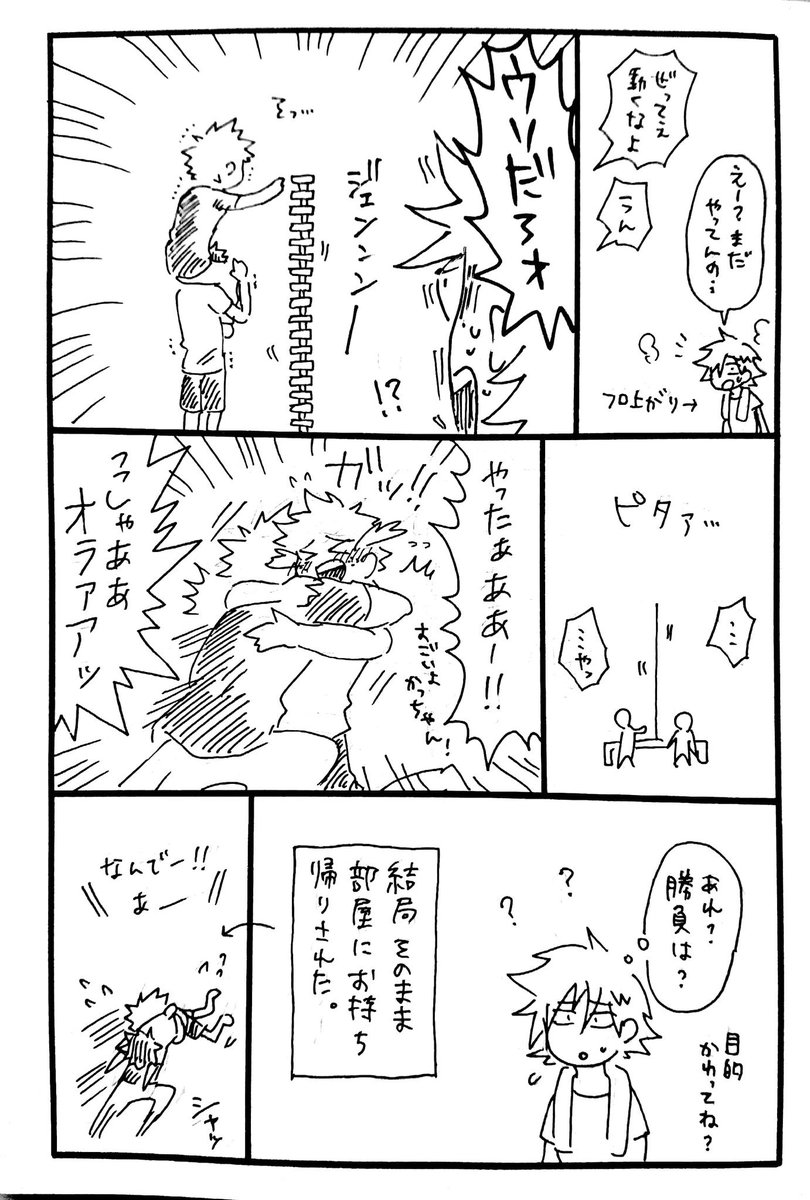 ぜってえ
動くなよ
うん
えーてまだ
やってんの…
フロ上がり→
ウソだろォ
そっ…
ジェンンンー
!?
ピタァ…
……
…やっ
やったぁああー!!
ガッ!!
すごいよ
かっちゃん!
っっしゃああ
オラァァアッ
あれ?
勝負は?
?
?
目的
かわってね?
結局そのまま
部屋にお持ち
帰りされた。
なんでー!!
あー
??
シャッ